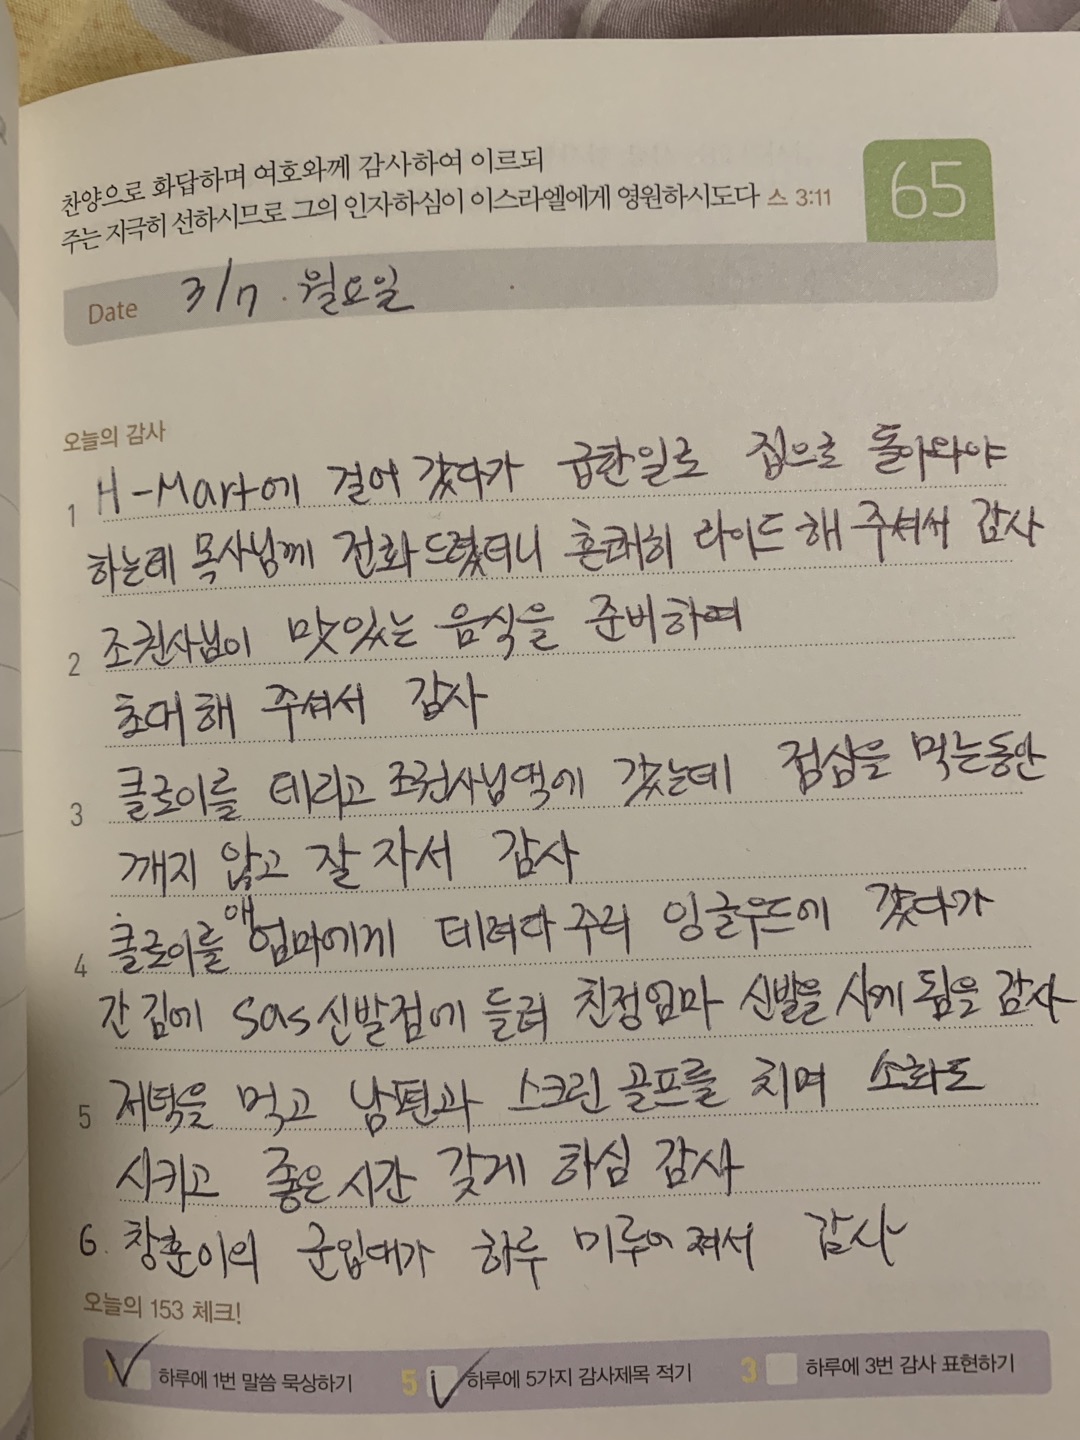 찬양으로 화답하며 여호와께 감사하여 이르되
주는 지극히 선하시므로 그의 인자하심이 이스라엘에게 영원하시도다 스 3:11
65
Date 3/7 . 월요일
오늘의 감사
1 H-Mart에 걸어 갔다가 급한일로 집으로 돌아와야
하는데 목사님께 전화드렸더니 흔쾌히 라이드 해 주셔서 감사
2 조권사님이 맛있는 음식을 준비하여
초대해 주셔서 감사
3 클로이를 데리고 조권사님댁에 갔는데 점심을 먹는동안
깨지 않고 잘 자서 감사
4 클로이를 애엄마에게 데려다 주러 잉글우드에 갔다가
간 김에 sas신발점에 들려 친정엄마 신발을 사게 됨을 감사
5 저녁을 먹고 남편과 스크린 골프를 치며 소화도
시키고 좋은 시간 갖게 하심 감사
6. 창훈이의 군입대가 하루 미루어 져서 감사
오늘의 153 체크!
1 하루에 1번 말씀 묵상하기 5 하루에 5가지 감사제목 적기 3 하루에 3번 감사 표현하기